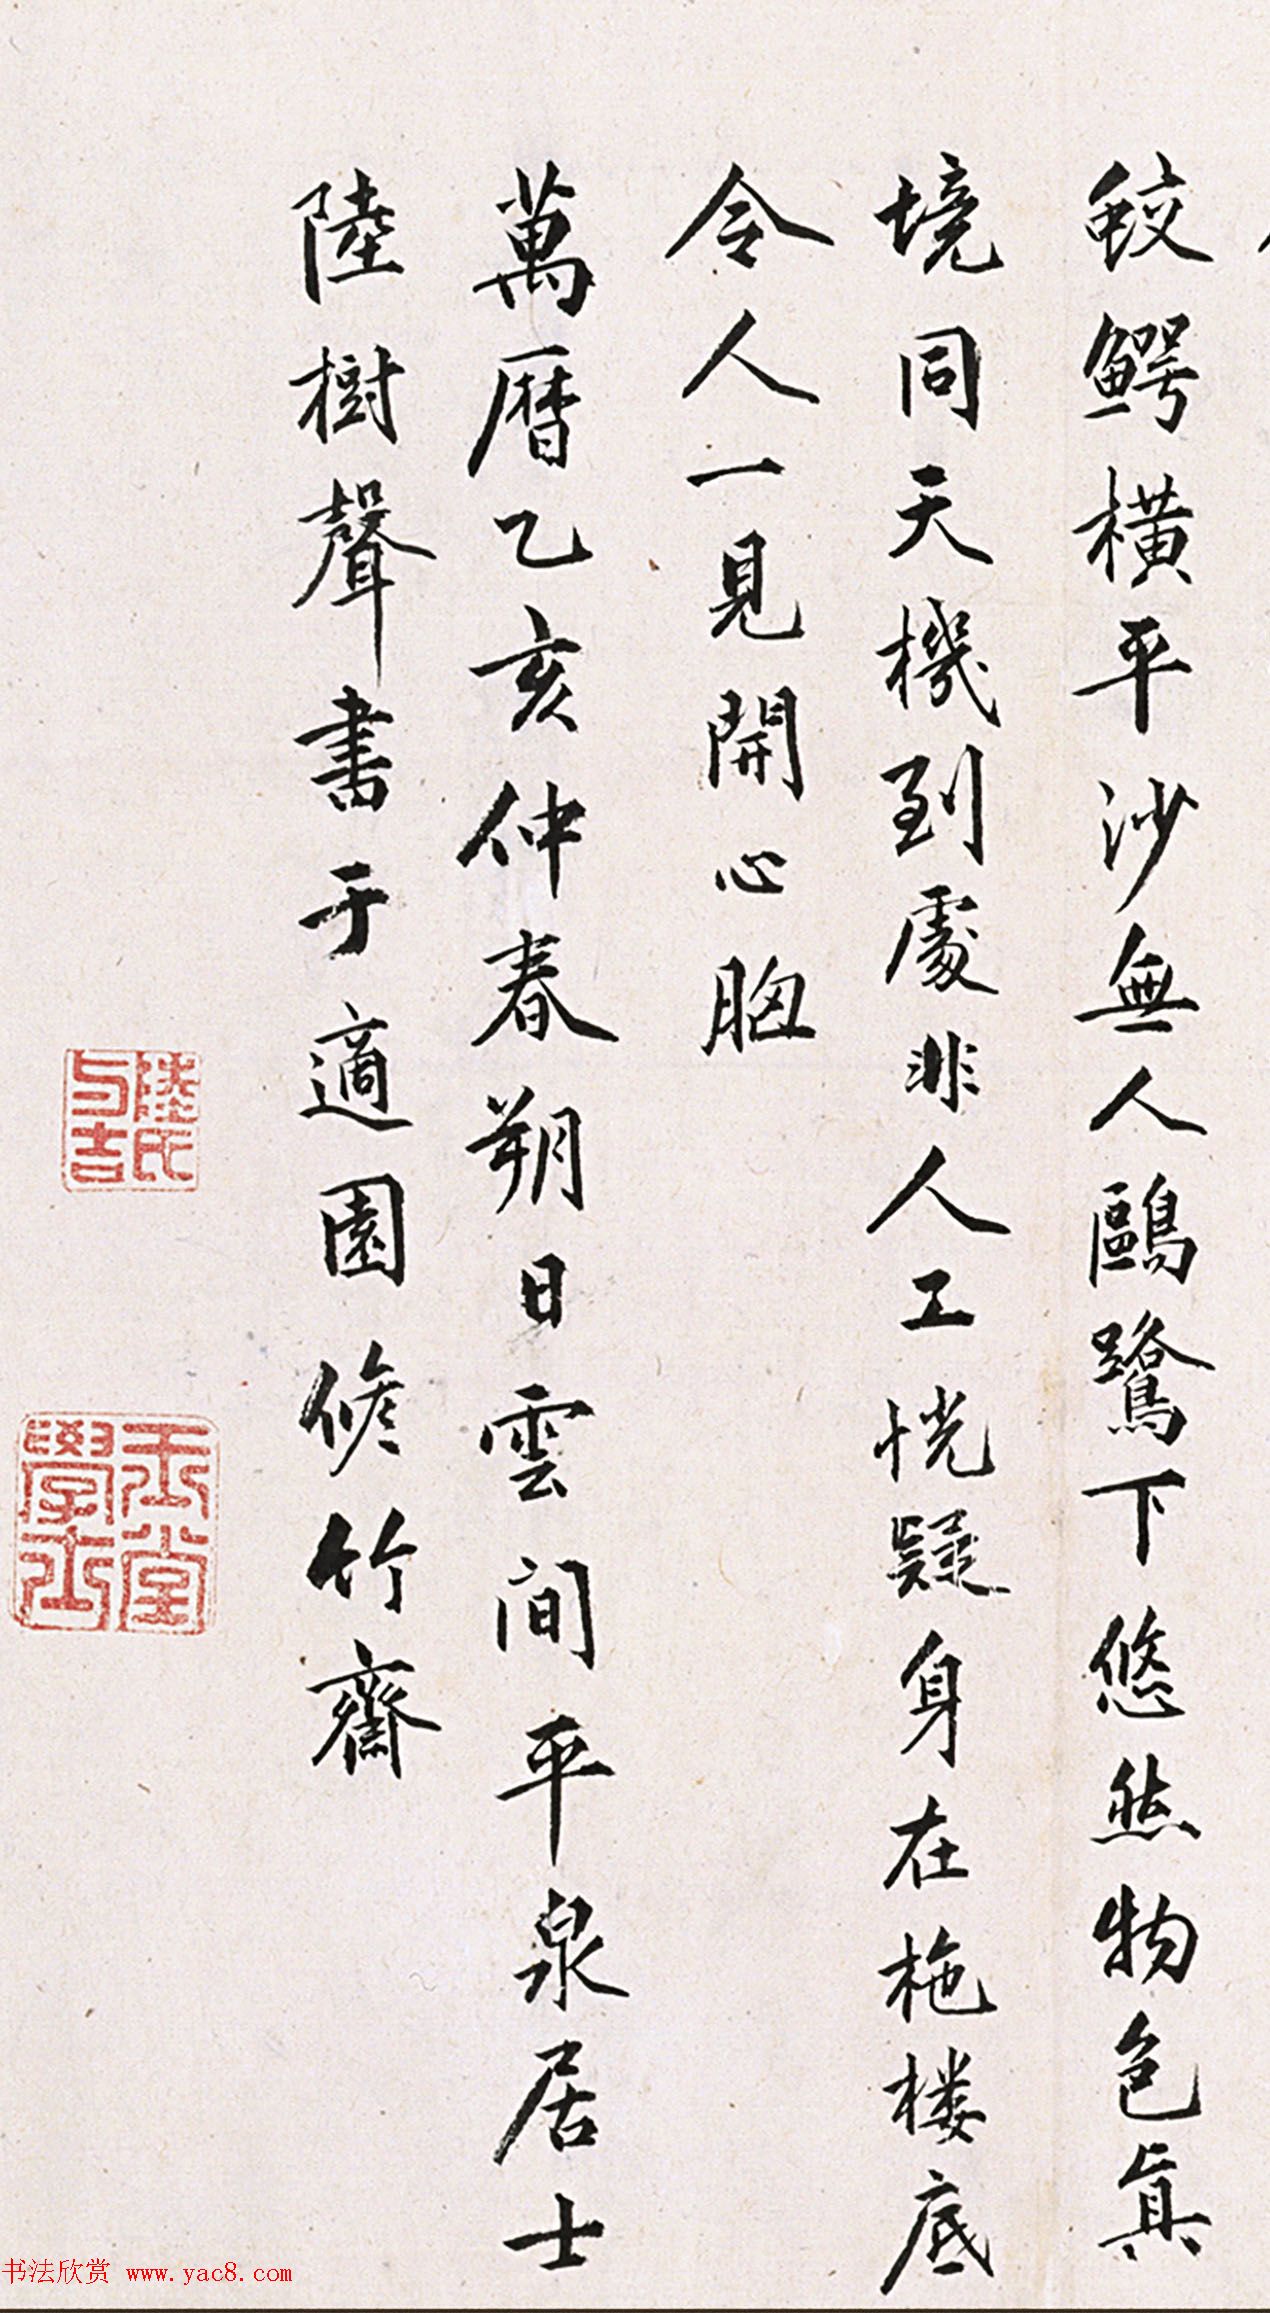 鮫鰐橫平沙無人鷗鷺下悠然物色真
境同天機到處非人工恍疑身在柂楼底
令人一見開心胸
萬曆乙亥仲春朔日雲間平泉居士
陸樹聲書于適園脩竹齋
陸氏与吉
玉堂學士
书法欣赏 www.yac8.com